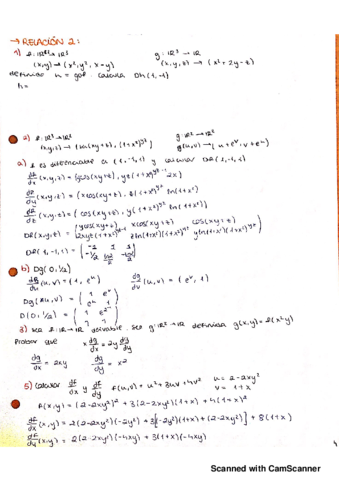 → RELACIÓN 2:
1) f: ℝ² → ℝ³ g: ℝ³ → ℝ
(x,y) → (x², y², x-y) (x,y,z) → (x² + 2y - z)
definimos h = g∘f. calcula Dh(1,-1)
h =
2) f: ℝ³ → ℝ² g: ℝ² → ℝ²
(x,y,z) → (sen(xy+z), (1+x²)^yz) g(u,v) → (u + e^v, v + e^u)
a) f es diferenciable en (1,-1,1) y calcular Df(1,-1,1)
df/dx (x,y,z) = (ycos(xy+z), yz(1+x²)^yz-1 2x)
df/dy (x,y,z) = (xcos(xy+z), z(1+x²)^yz ln(1+x²)
df/dz (x,y,z) = (cos(xy+z), y(1+x²)^yz ln(1+x²))
b) Dg(0,1/2)
dg/du (u,v) = (1, e^u) dg/dv (u,v) = (e^v, 1)
3) sea f: ℝ → ℝ derivable. Sea g: ℝ² → ℝ definida g(x,y) = f(x²y)
Probar que x dg/dx = 2y dg/dy
dg/dx = 2xy dg/dy = x²
5) Calcular df/dx y df/dy f(u,v) = u² + 3uv + 4v² u = 2-2xy²
v = 1+x
f(x,y) = (2-2xy²)² + 3(2-2xy²)(1+x) + 4(1+x)²
df/dx (x,y) = 2(2-2xy²)(-2y²) + 3[(-2y²)(1+x) + (2-2xy²)] + 8(1+x)
df/dy (x,y) = 2(2-2xy²)(-4xy) + 3(1+x)(-4xy)
Scanned with CamScanner